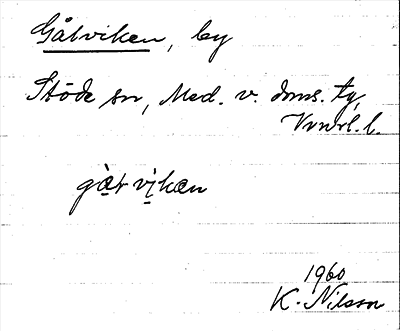 Gåtviken, by
Stöde sn, Med. v. doms. tg,
Vrnrl. l.
gåt vikæn
1960
K. Nilsson